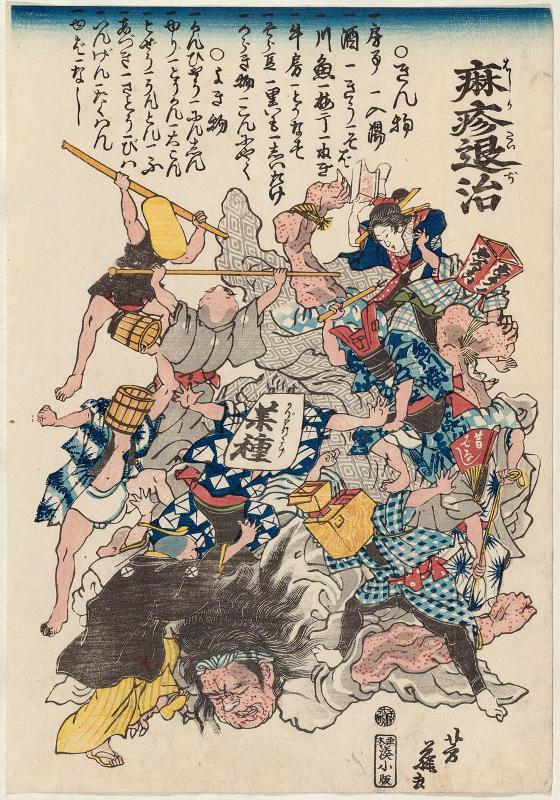 痳疹退治
はしかたいぢ
○きん物
一房事 一入湯
一酒 一そば
一川魚一梅干一ねぎ
一牛房一とうなす
一そら豆一里いも一しいたけ
一からき物一こんにやく
○よき物
一かんひやう一にんじん
一ゆり一とうがん一大こん
一どぜう一うどん一ふ
一あづき一さとう一びは
一いんげん一たくあん
一ゆば一なし
薬種
昔ばなし
芳藤画
湊小版